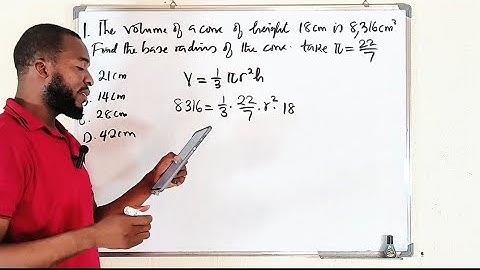 1. The volume of a cone of height 18cm is 8,316cm³
Find the base radius of the cone. take π = 22/7
21cm
14cm
C. 28cm
D. 42cm
V = 1/3 πr²h
8316 = 1/3 · 22/7 · r² · 18